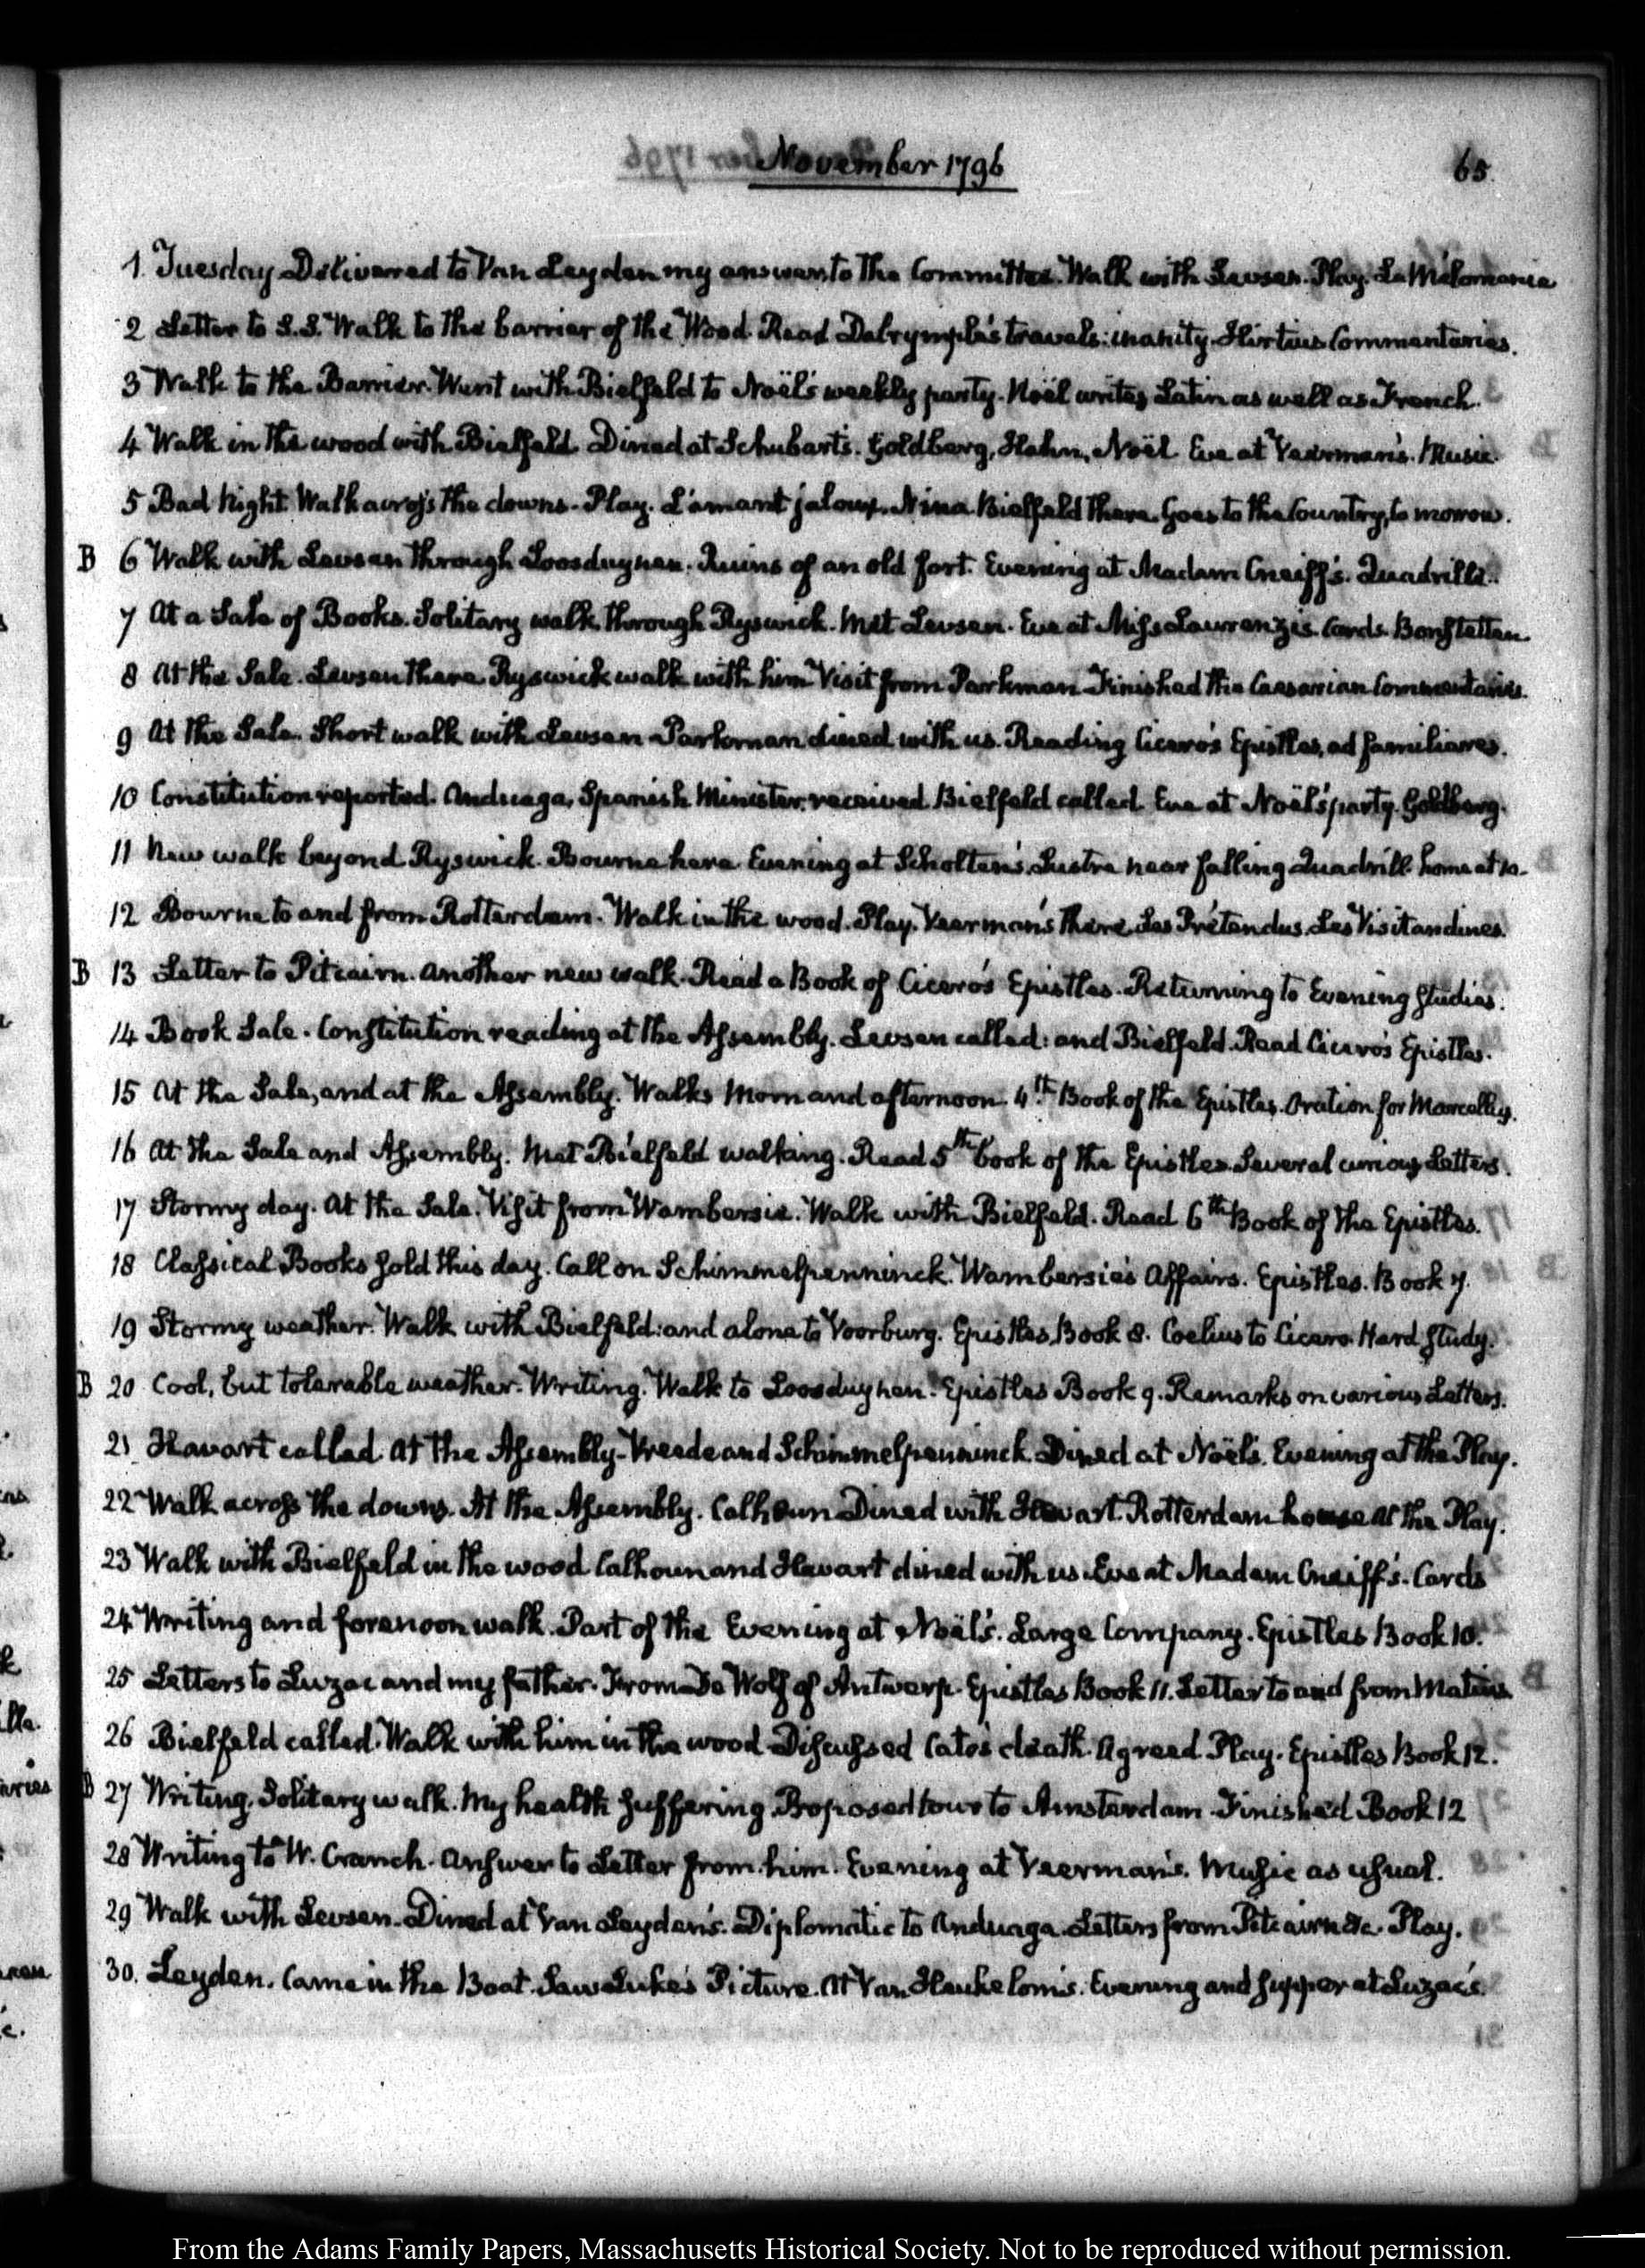 November 1796
65.
1. Tuesday Delivered to Van Leyden my answer to the Committee. Walk with Levsen. Play. La Mélomanie
2 Letter to S.S. Walk to the barrier of the Wood. Read Dalrymple's travels: inanity. Hirtius Commentaries.
3 Walk to the Barrier. Went with Bielfeld to Noël's weekly party. Noël writes Latin as well as French.
4 Walk in the wood with Bielfeld. Dined at Schubart's. Goldberg, Hahn, Noël. Eve at Veerman's. Music.
5 Bad Night. Walk across the downs. Play. L'amant jaloux. Nina. Bielfeld there. Goes to the Country, to morrow.
B 6 Walk with Levsen through Loosduynen. Ruins of an old fort. Evening at Madam Cneiff's. Quadrille.
7 At a Sale of Books. Solitary walk through Ryswick. Met Levsen. Eve at Miss Laurenzi's. Cards. Bonstetten.
8 At the Sale. Levsen there. Ryswick walk with him. Visit from Parkman. Finished the Caesarian Commentaries.
9 At the Sale. Short walk with Levsen. Parkman dined with us. Reading Cicero's Epistles, ad familiares.
10 Constitution reported. Anduaga, Spanish Minister, received. Bielfeld called. Eve at Noël's party. Goldberg.
11 New walk beyond Ryswick. Bourne here. Evening at Scholten's. Lustre near falling. Quadrill. home at 10.
12 Bourne to and from Rotterdam. Walk in the wood. Play. Veerman's there. Les Prétendus. Les Visitandines.
B 13 Letter to Pitcairn. Another new walk. Read a Book of Cicero's Epistles. Returning to Evening studies.
14 Book Sale. Constitution reading at the Assembly. Levsen called: and Bielfeld. Read Cicero's Epistles.
15 At the Sale, and at the Assembly. Walks Morn and afternoon. 4th. Book of the Epistles. Oration for Marcellus.
16 At the Sale and Assembly. Met Bielfeld walking. Read 5th book of the Epistles. Several curious Letters.
17 Stormy day. At the Sale. Visit from Wambersie. Walk with Bielfeld. Read 6th Book of the Epistles.
18 Classical Books sold this day. Call on Schimmelpenninck. Wambersie's Affairs. Epistles. Book 7.
19 Stormy weather. Walk with Bielfeld: and alone to Voorburg. Epistles, Book 8. Coelius to Cicero. Hard study.
B 20 Cool, but tolerable weather. Writing. Walk to Loosduynen. Epistles Book 9. Remarks on various Letters.
21 Havart called. At the Assembly. Vreede and Schimmelpenninck. Dined at Noël's. Evening at the Play.
22 Walk across the downs. At the Assembly. Calhoun. Dined with Havart. Rotterdam house. At the Play.
23 Walk with Bielfeld in the wood. Calhoun and Havart dined with us. Eve at Madam Cneiff's. Cards
24 Writing and forenoon walk. Part of the Evening at Noël's. Large Company. Epistles Book 10.
25 Letters to Luzac and my father. From De Wolf of Antwerp. Epistles Book 11. Letter to and from Matius
26 Bielfeld called. Walk with him in the wood. Discussed Cato's death. Agreed. Play. Epistles Book 12.
B 27 Writing. Solitary walk. My health suffering. Proposed tour to Amsterdam. Finished Book 12
28 Writing to W. Cranch. Answer to Letter from him. Evening at Veerman's. Music as usual.
29 Walk with Levsen. Dined at Van Leyden's. Diplomatic to Anduaga. Letters from Pitcairn &c. Play.
30. Leyden. Came in the Boat. Saw Luke's Picture. At Van Heukelom's. Evening and supper at Luzac's.
From the Adams Family Papers, Massachusetts Historical Society. Not to be reproduced without permission.